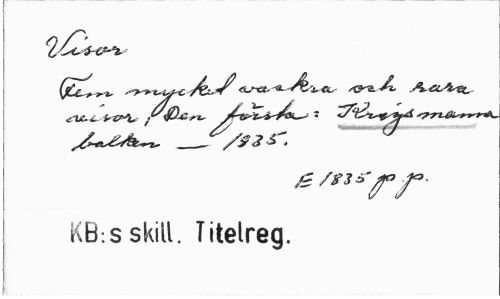 Visor
Fem mycket vackra och rara
visor, Den första: Krigsmanna
balken — 1835.
E 1835 p.p.
KB:s skill. Titelreg.